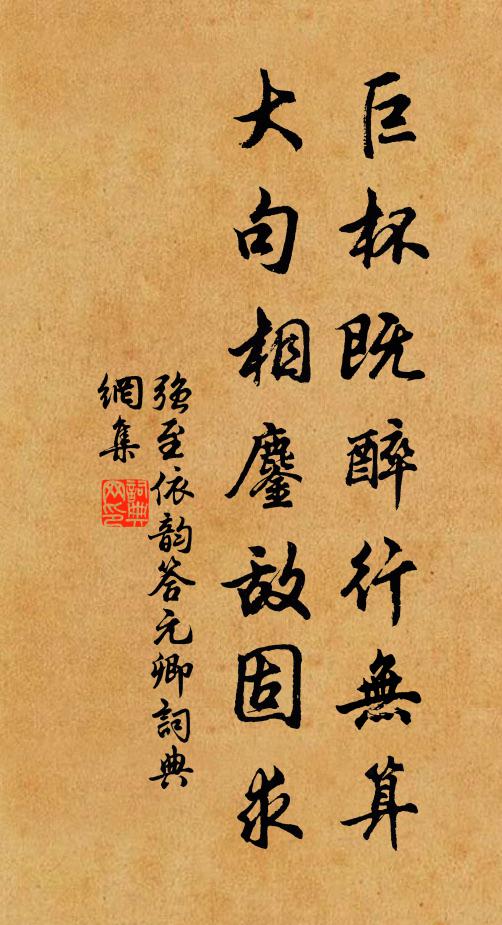 巨杯既醉行無算
大句相鏖敌固求
强至依韵答元卿詞典
網集
詞典
网印